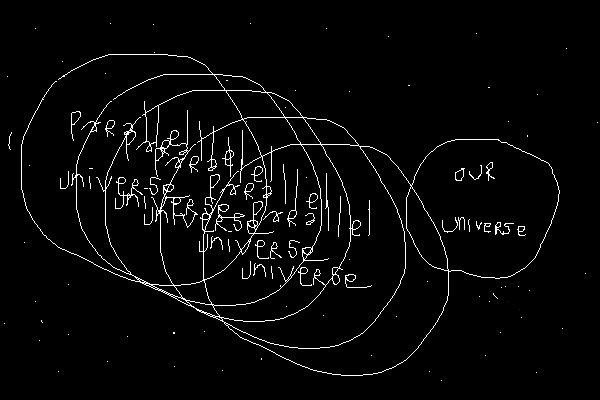 Parallel
UNIVERSe
Parallel
UNIVERSe
Parallel
UNIVERSe
Parallel
UNIVERSe
Parallel
UNIVERSe
OUR
UNIVERSe